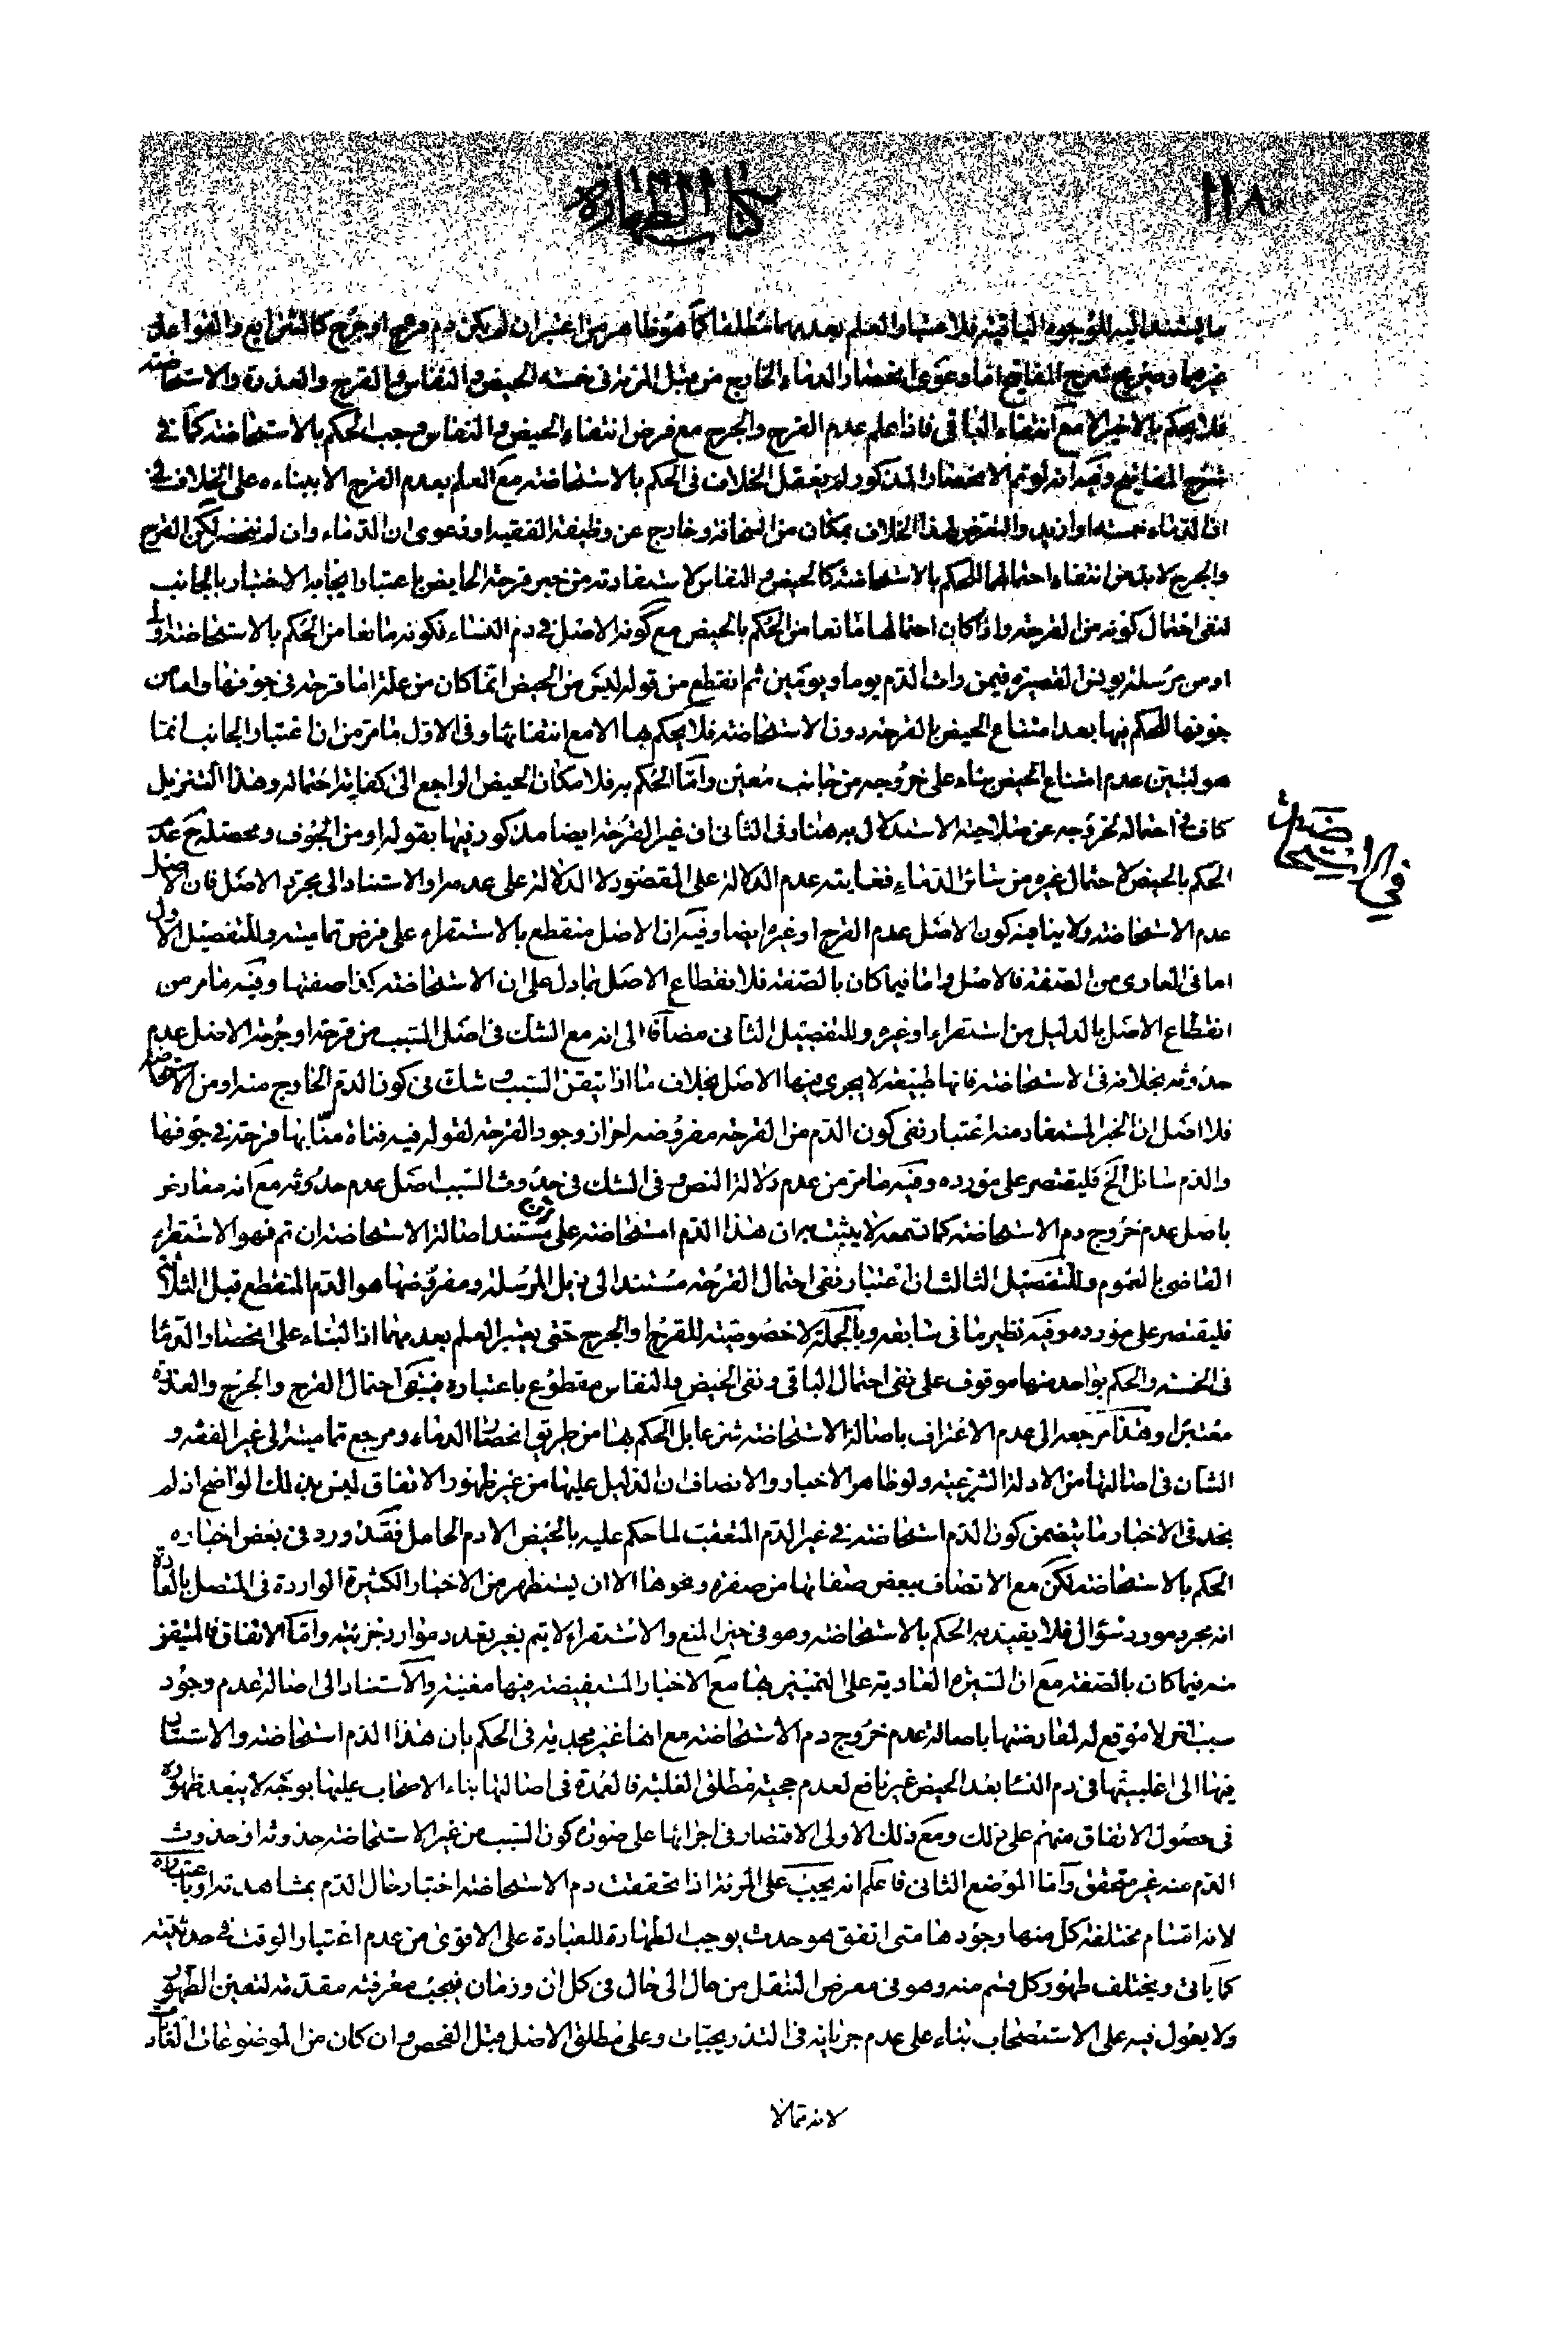 ١١٨
كتاب الطهارة
ما يستند اليه للوجوه الباقية فلاعتبار العلم بعدمهما مطلقا كما هو ظاهر من اعتبر ان لم يكن دم قرح او جرح كالشرايع والقواعد
غيرهما وصريح شرح المفاتيح اما دعوى انحصار الدماء الخارج من قبل المرئة فى خمسة الحيض والنفاس والقرح والعذرة والاستحاضة
فلا يحكم بالاخير الا مع انتفاء الباقى فاذا علم عدم القرح والجرح مع فرض انتفاء الحيض والنفاس وجب الحكم بالاستحاضة كما فى
شرح المفاتيح وفيه انه لو تم الانحصار المذكور لم يعقل الخلاف فى الحكم بالاستحاضة مع العلم بعدم القرح الا ببناءه على الخلاف فى
ان الدماء خمسة او ازيد والتعرض لهذا الخلاف بمكان من السخافة وخارج عن وظيفة الفقيه او دعوى ان الدماء وان لم تنحصر لكن القرح
والجرح لابد من انتفاء احتمالهما للحكم بالاستحاضة كالحيض والنفاس لاستفادته من خبر قرحة الحايض باعتبار ايجابه الاختبار بالجانب
لنفى احتمال كونه من القرحة واذا كان احتمالها مانعا من الحكم بالحيض مع كونه الاصل فى دم النساء فكونه مانعا من الحكم بالاستحاضة اولى
او من مرسلة يونس القصيرة فيمن رات الدم يوما ويومين ثم انقطع من قوله ليس من الحيض انما كان من علة اما قرحة فى جوفها واما من
جوفها للحكم فيها بعد امتناع الحيض بالقرحة دون الاستحاضة فلا يحكم بها الا مع انتفائها وفى الاول ما مر من ان اعتبار الجانب انما
هو لتبين عدم امتناع الحيض بناء على خروجه من جانب معين واما الحكم به فلامكان الحيض الراجع الى كفاية احتماله وهذا التنزيل
كاف فى احتماله لخروجه عن صلاحية الاستدلال به هنا وفى الثانى ان غير القرحة ايضا مذكور فيها بقوله او من الجوف ومحصله ح عدم
الحكم بالحيض لاحتمال غيره من سائر الدماء فغايته عدم الدلالة على المقصود لا الدلالة على عدمه او الاستناد الى مجرد الاصل فان الاصل
عدم الاستحاضة ولا ينافيه كون الاصل عدم القرح او غيره ايضا وفيه ان الاصل منقطع بالاستقراء على فرض تماميته وللتفصيل الاول
اما فى العارى من الصفة فالاصل واما فيما كان بالصفة فلانقطاع الاصل بما دل على ان الاستحاضة كذا صفتها وفيه ما مر من
انقطاع الاصل بالدليل من استقراء او غيره وللتفصيل الثانى مضافا الى انه مع الشك فى اصل السبب من قرحة او جرحة الاصل عدم
حدوثه بخلافه فى الاستحاضة فانها طبيعة لا يجرى فيها الاصل بخلاف ما اذا تيقن السبب وشك فى كون الدم الخارج منه او من الاستحاضة
فلا اصل ان الخبر المستفاد منه اعتبار نفى كون الدم من القرحة مفروضه احراز وجود القرحة لقوله فيه فتاة منا بها قرحة فى جوفها
والدم سائل الخ فليقتصر على مورده وفيه ما مر من عدم دلالة النص وفى الشك فى حدوث السبب اصل عدم حدوثه مع انه معارض
باصل عدم خروج دم الاستحاضة كما تسمعه لا يثبت به ان هذا الدم استحاضة على مستند اصالة الاستحاضة ان تم فهو الاستقراء
القاضى بالعموم وللتفصيل الثالث ان اعتبار نفى احتمال القرحة مستندا الى ذيل المرسلة ومفروضها هو الدم المنقطع قبل الثلاثة
فليقتصر على مورده وفيه نظير ما فى سابقه وبالجملة لا خصوصية للقرح والجرح حتى يعتبر العلم بعدمهما اذ البناء على انحصار الدماء
فى الخمسة والحكم بواحد منها موقوف على نفى احتمال الباقى ونفى الحيض والنفاس مقطوع باعتباره فيبقى احتمال القرح والجرح والعذرة
معتبرا وهذا مرجعه الى عدم الاعتراف باصالة الاستحاضة شرعا بل الحكم بها من طريق انحصار الدماء ومرجع تماميته الى غير الفقه و
الشان فى اصالتها من الادلة الشرعية ولو ظاهر الاخبار والانصاف ان الدليل عليها من غير ظهور الاتفاق ليس بذلك الواضح اذ لم
نجد فى الاخبار ما يتضمن كون الدم استحاضة فى غير الدم المتعقب لما حكم عليه بالحيض الا دم الحامل فقد ورد فى بعض اخباره
الحكم بالاستحاضة لكن مع الاتصاف ببعض صفاتها من صفرة ونحوها الا ان يستظهر من الاخبار الكثيرة الواردة فى المتصل بالعادة
انه مجرد مورد سؤال فلا يقيد به الحكم بالاستحاضة وهو فى حيز المنع والاستقراء لا يتم بغير تعدد موارد جزئية واما الاتفاق فالمتيقن
منه فيما كان بالصفة مع ان السيرة العادية على التميز بها مع الاخبار المستفيضة فيها مغنية والاستناد الى اصالة عدم وجود
سبب اخر لا موقع له لمعارضتها باصالة عدم خروج دم الاستحاضة مع انها غير مجدية فى الحكم بان هذا الدم استحاضة والاستناد
فيها الى اغلبيتها فى دم النساء بعد الحيض غير نافع لعدم حجية مطلق الغلبة فالعمدة فى اصالتها بناء الاصحاب عليها بوجه لا يبعد ظهوره
فى حصول الاتفاق منهم على ذلك ومع ذلك الاولى الاقتصار فى اجرائها على صورة كون السبب من غير الاستحاضة حدوثه او حدوث
الدم عنه غير متحقق واما الموضع الثانى فاعلم انه يجب على المرئة اذا تحققت دم الاستحاضة اختبار حال الدم بمشاهدته او باعتباره
لانه اقسام مختلفة كل منها وجودها متى اتفق هو حدث يوجب الطهارة للعبادة على الاقوى من عدم اعتبار الوقت فى حدثيته
كما ياتى ويختلف طهور كل قسم منه وهو فى معرض التنقل من حال الى حال فى كل ان وزمان فيجب معرفته مقدمة لتعين الطهور
ولا يعول فيه على الاستصحاب بناء على عدم جريانه فى التدريجيات وعلى مطلق الاصل قبل الفحص وان كان من الموضوعات
لانه تمالا
فى الاستحاضة